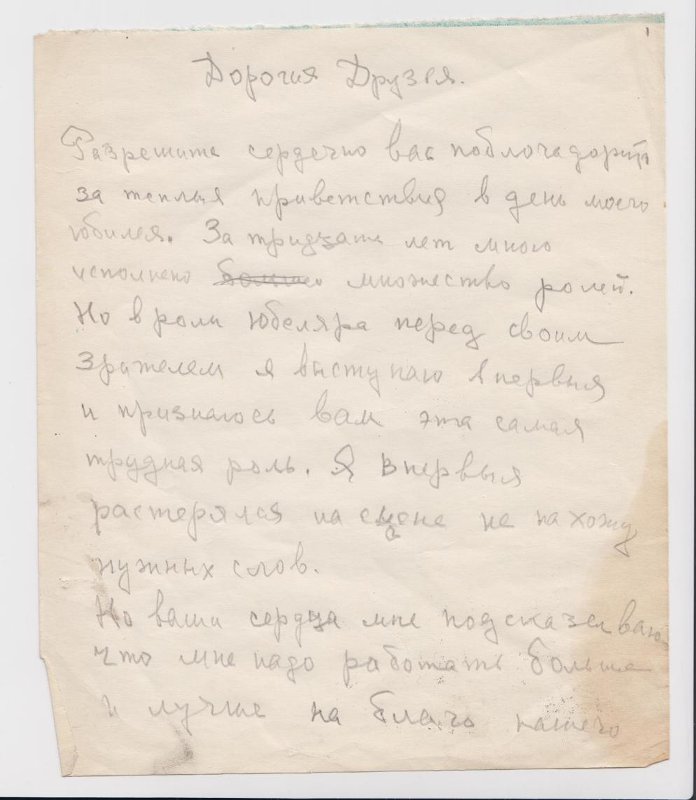 1
Дорогия Друзья.
Разрешите сердечно вас поблогадорить
за теплыя приветствия в день моего
юбилея. За тридцать лет мною
исполнено множество ролей.
Но в роли юбеляра перед своим
зрителем я выступаю впервыя
и признаюсь вам эта самая
трудная роль. Я впервыя
растерялся на сцене не нахожу
нужных слов.
Но ваши сердца мне подсказывают
что мне надо работать больше
и лучше на благо нашего